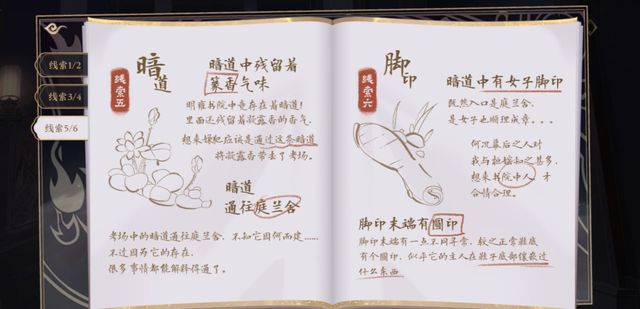 线索1/2
线索3/4
线索5/6
线索五
暗道
暗道中残留着
篆香气味
明雍书院中竟存在着暗道!
里面还残留着凝露香的香气,
想来嫌犯应该是通过这条暗道
将凝露香带去了考场。
暗道
通往庭兰舍
考场中的暗道通往庭兰舍,不知它因何而建……
不过因为它的存在,
很多事情都能解释得通了。
线索六
脚印
暗道中有女子脚印
既然入口是庭兰舍,
是女子也顺理成章...
何况幕后之人对
我与她知之甚多,
想来书院中人,才
合情合理。
脚印末端有圆印
脚印末端有一点不同寻常,较之正常鞋底
有个圆印,似乎它的主人在鞋子底部镶嵌过
什么东西